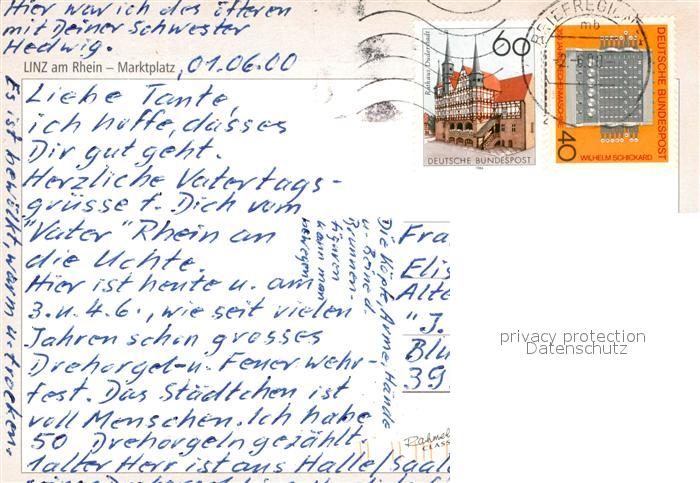 Hier war ich des öfteren
mit Deiner Schwester
Hedwig.
LINZ am Rhein – Marktplatz
01.06.00
Liebe Tante,
ich hoffe, dasses
Dir gut geht.
Herzliche Vatertags-
grüsse f. Dich vom
"Vater" Rhein an
die Uchte.
Hier ist heute u. am
3. u. 4.6., wie seit vielen
Jahren schon grosses
Drehorgel- u. Feuerwehr-
fest. Das Städtchen ist
voll Menschen. Ich habe
50 Drehorgeln gezählt.
1 alter Herr ist aus Halle/Saale
Es ist bewölkt, warm u. trocken.
Die Köpfe, Arme, Hände
u. Beine d.
Brunnen-
figuren
kann man
bewegen
Fra
Elis
Alte
"J.
Blu
39
60
Rathaus Duderstadt
DEUTSCHE BUNDESPOST
1984
BRIEFREGION
mb
DEUTSCHE BUNDESPOST
WILHELM SCHICKARD
40
privacy protection
Datenschutz
Rahmel
CLASS